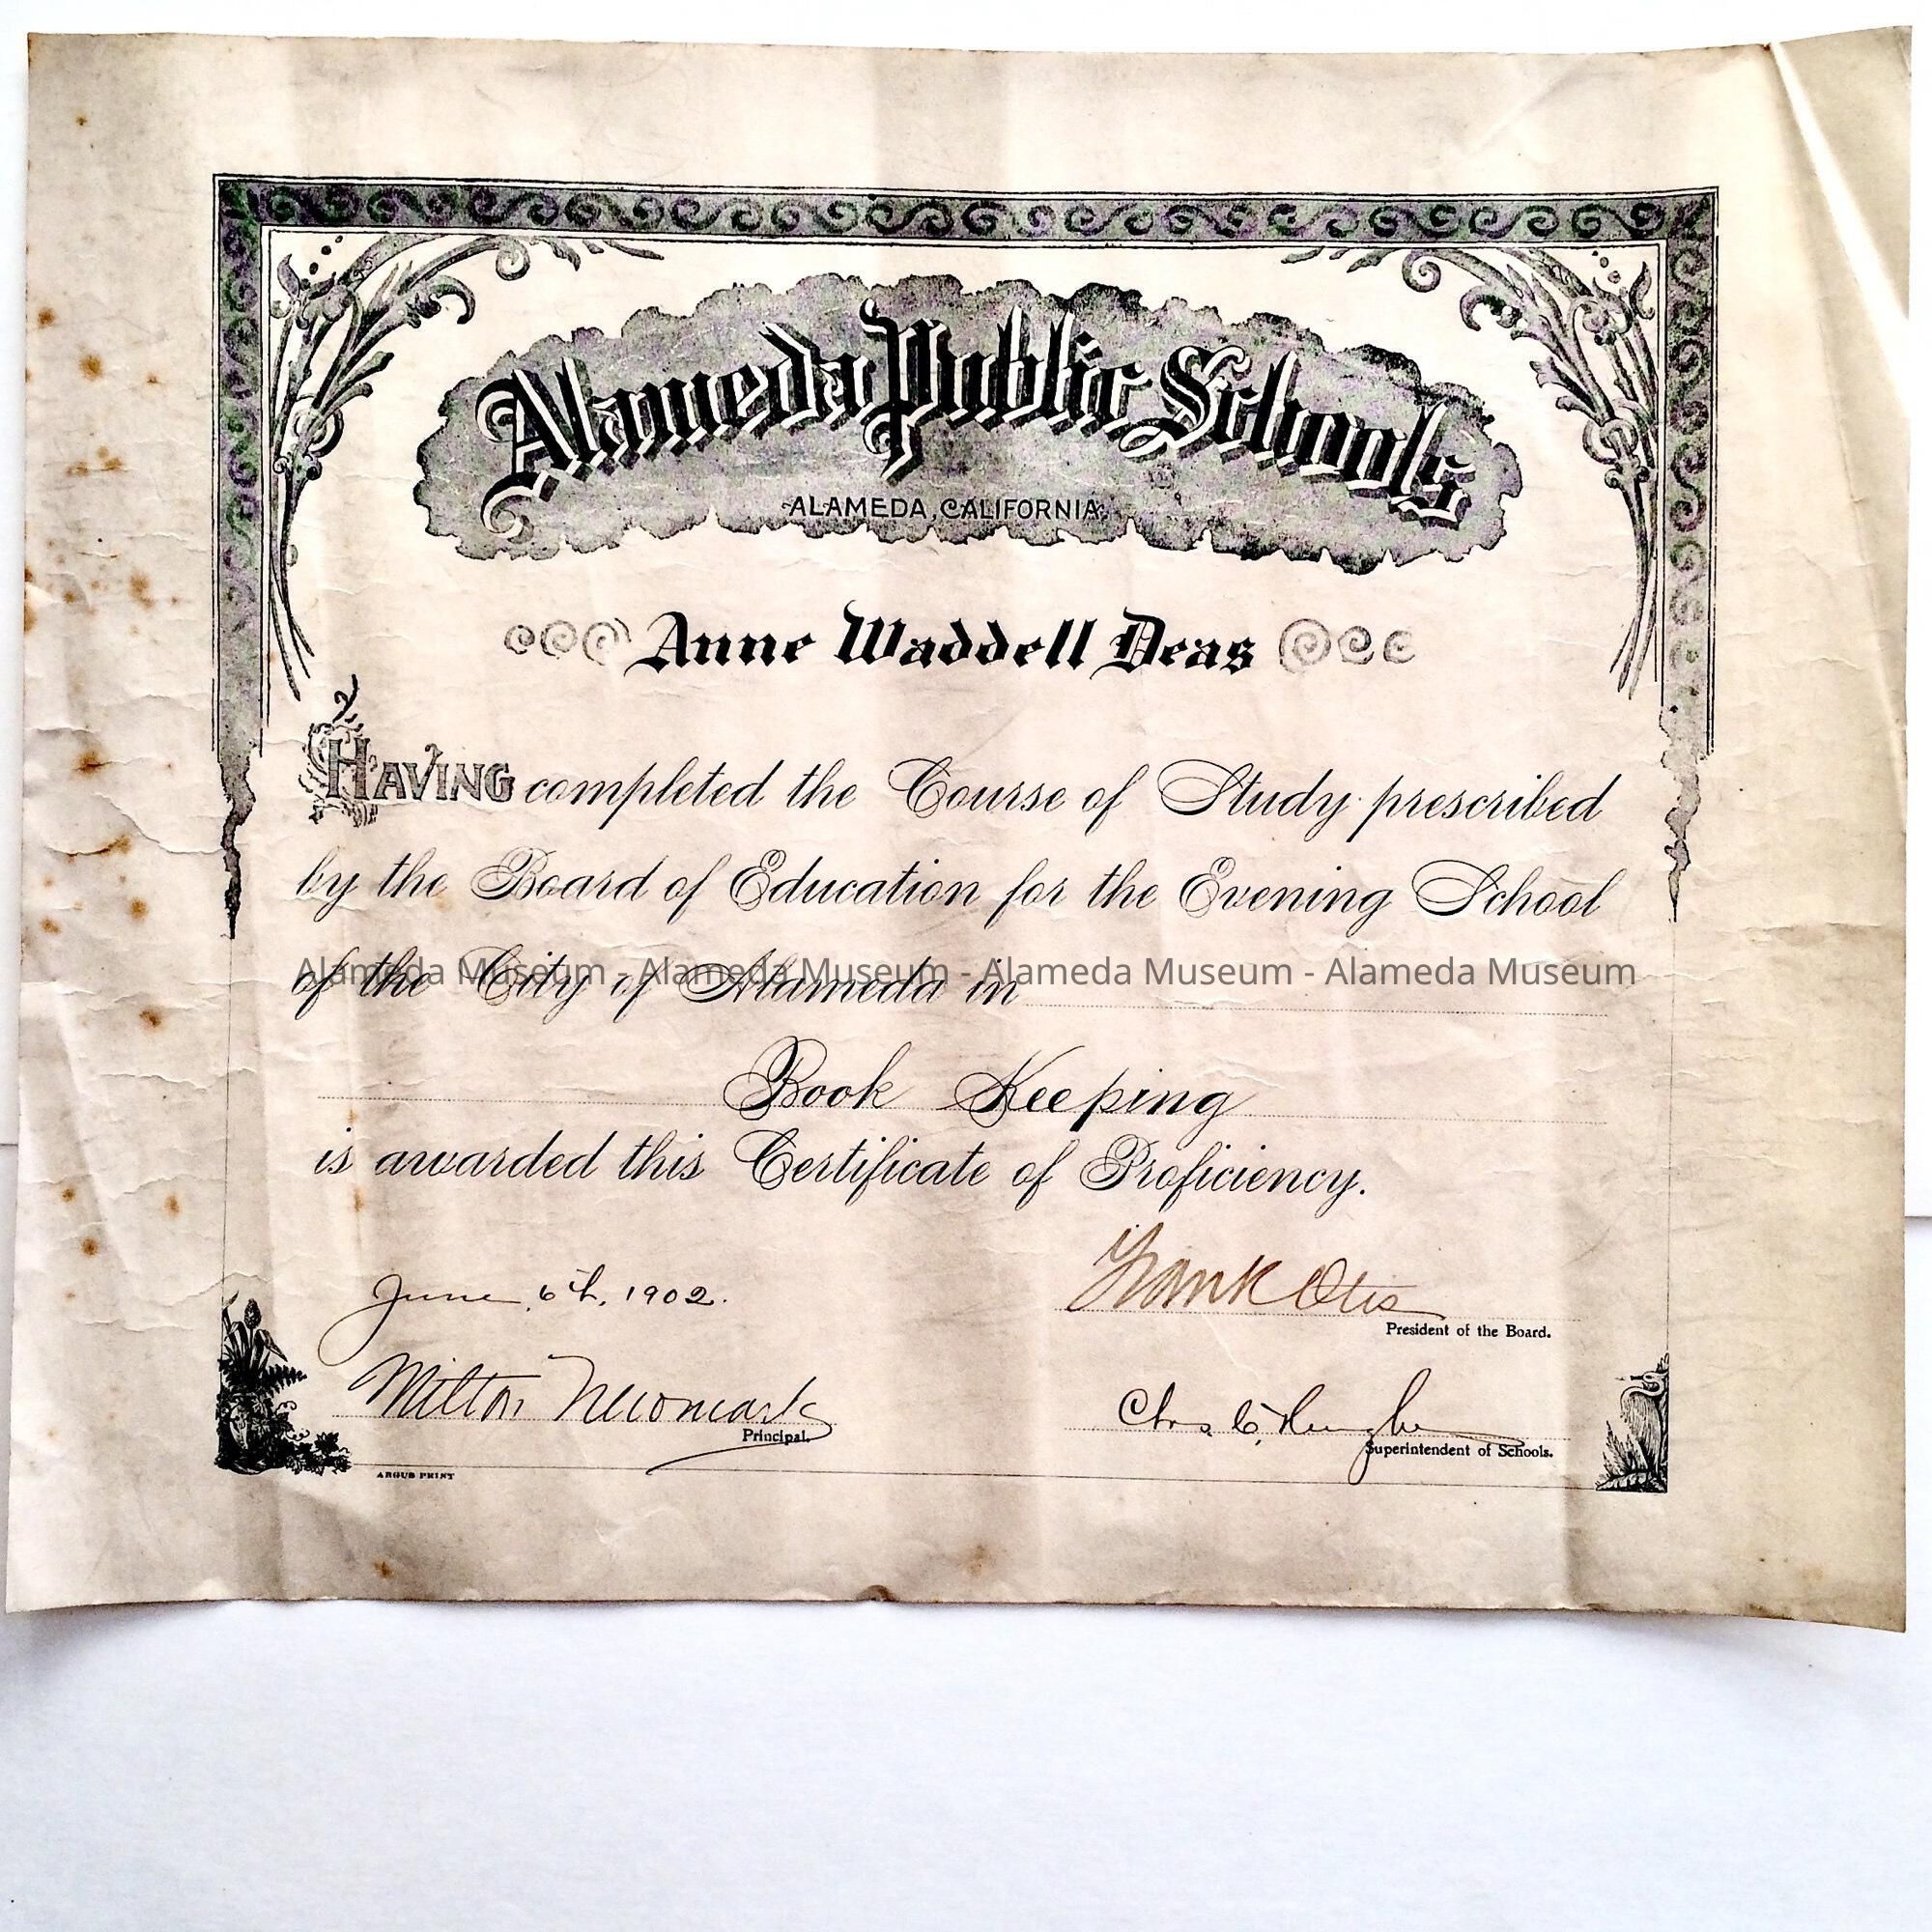 Alameda Public Schools
ALAMEDA, CALIFORNIA
Anne Waddell Deas
HAVING completed the Course of Study prescribed
by the Board of Education for the Evening School
of the City of Alameda in
Alameda Museum - Alameda Museum - Alameda Museum - Alameda Museum
Book Keeping
is awarded this Certificate of Proficiency.
June 6th, 1902.
Frank Otis
President of the Board.
Milton Newmark
Principal.
Chas C. Hughes
Superintendent of Schools.
ARGUS PRINT